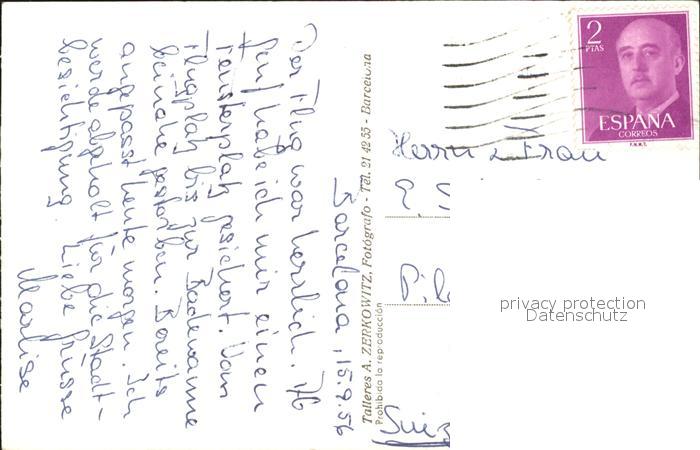 Barcelona, 15.9.56
Der Flug war herrlich. Ab
Genf habe ich mir einen
Fensterplatz gesichert. Vom
Flugplatz bis zur Badewanne
beinahe gestorben. Bereits
angepasst heute morgen. Ich
werde abgeholt für die Stadt-
besichtigung. Liebe Grüsse
Marlise
Talleres A. ZERKOWITZ, Fotógrafo - Tél. 21 42 55 - Barcelona
Prohibida la reproducción
2
PTAS
ESPAÑA
CORREOS
F.N.M.T.
Herrn & Frau
E.
Suiz
privacy protection
Datenschutz